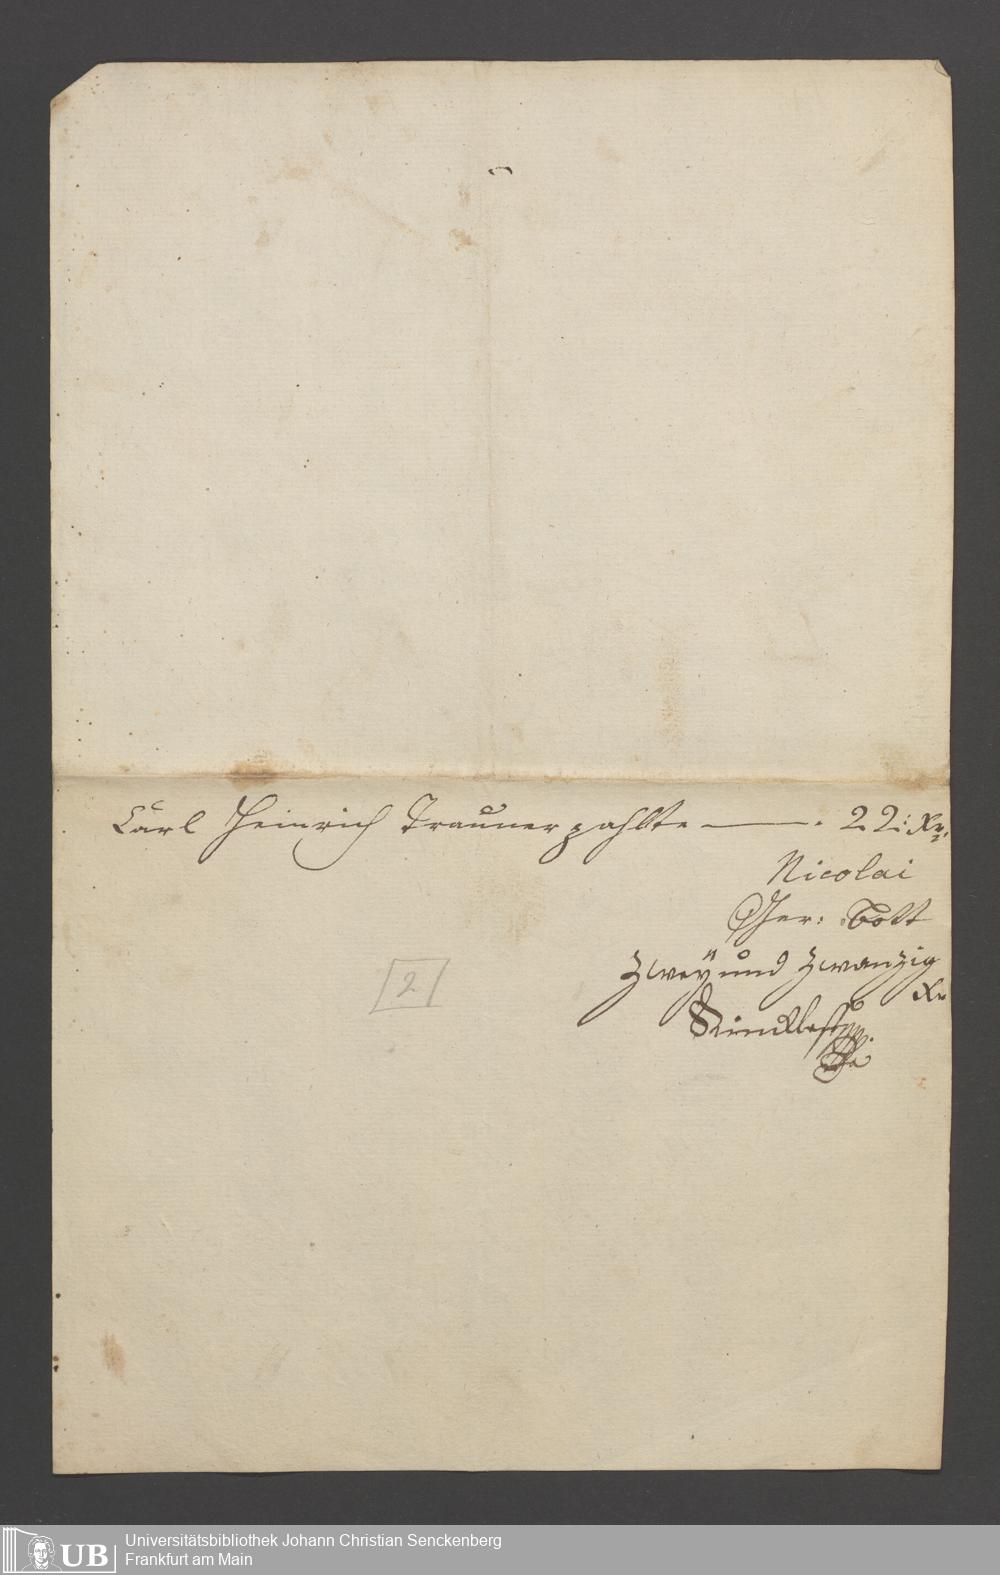 Carl Heinrich Trauner zahlte —— . 22: Xr:
Nicolai
Ger: Bott
Zweÿ und zwanzig
Xr
[2]
UB
Universitätsbibliothek Johann Christian Senckenberg
Frankfurt am Main